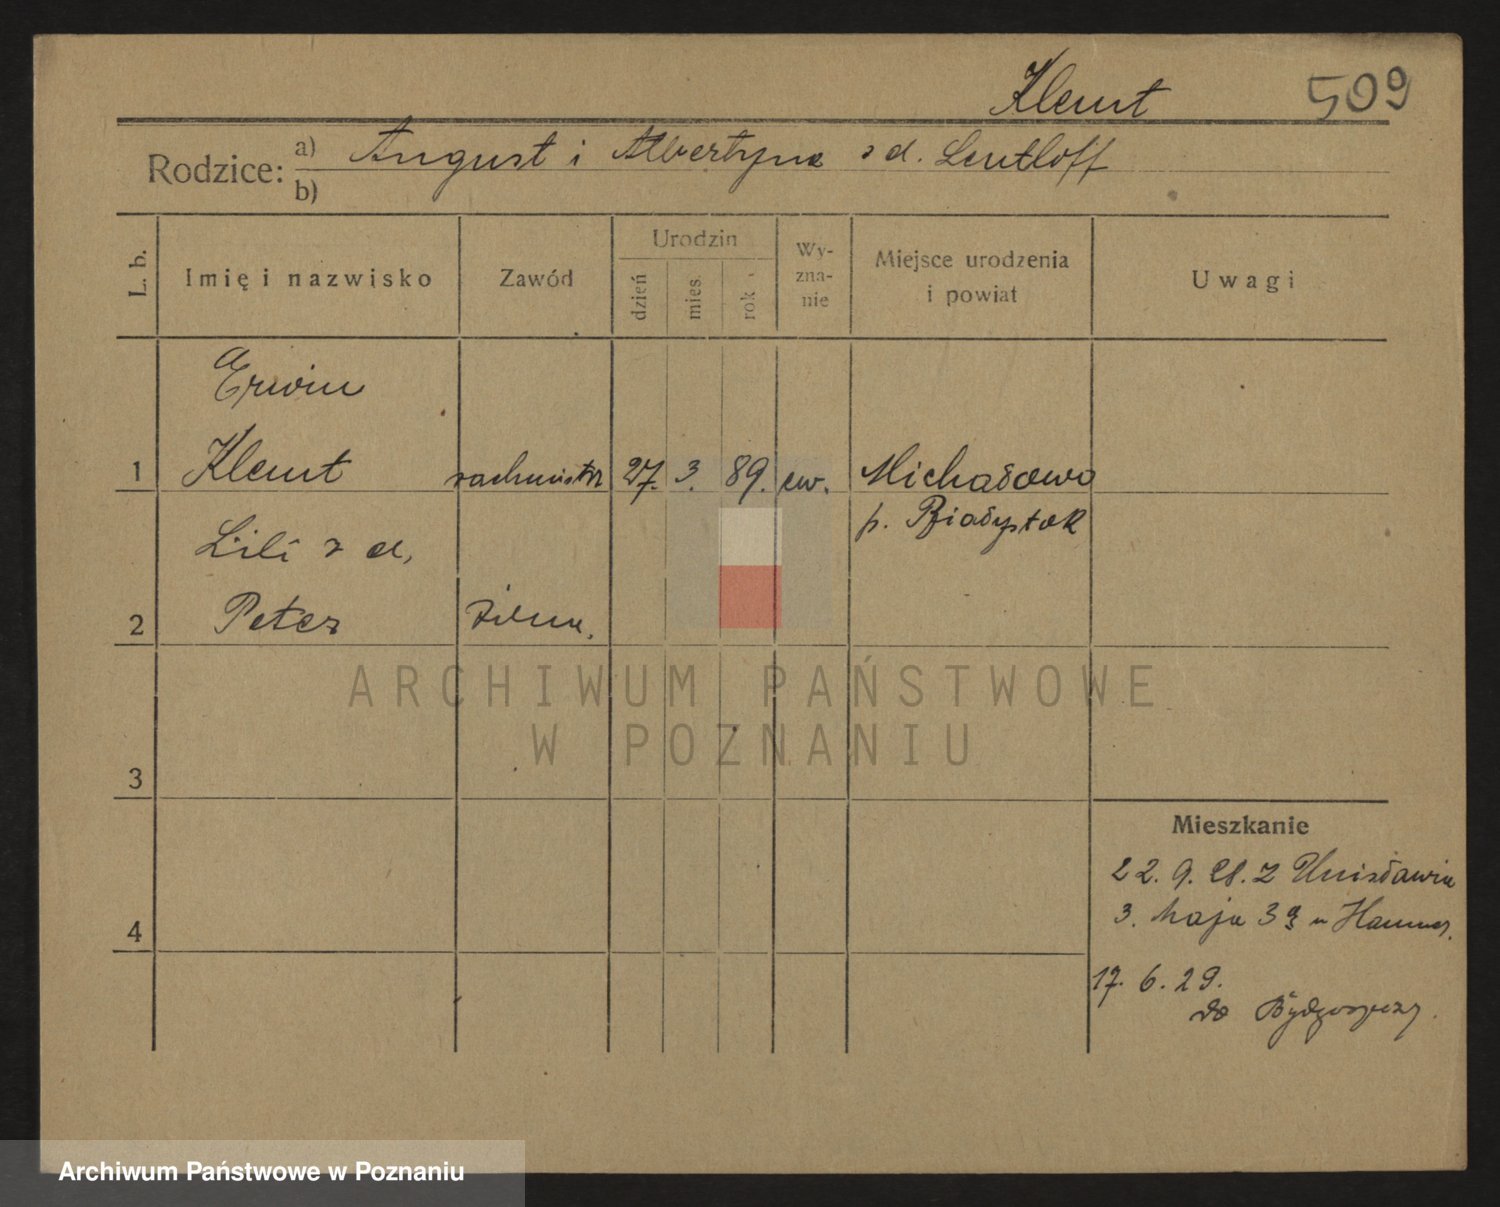 Klemt 509
Rodzice: a) August i Albertyna z d. Lentloff
b)
L. b. Imię i nazwisko Zawód Urodzin dzień mies. rok Wy-zna-nie Miejsce urodzenia i powiat Uwagi
Erwin
1 Klemt rachmistrz 27. 3. 89. ew. Michałowo
p. Białystok
Lili z d.
2 Peter żona.
ARCHIWUM PAŃSTWOWE
W POZNANIU
3
Mieszkanie
22. 9. 28. z Unisławia
4 3. Maja 39 u Hammer.
17. 6. 29.
do Bydgoszczy.
Archiwum Państwowe w Poznaniu